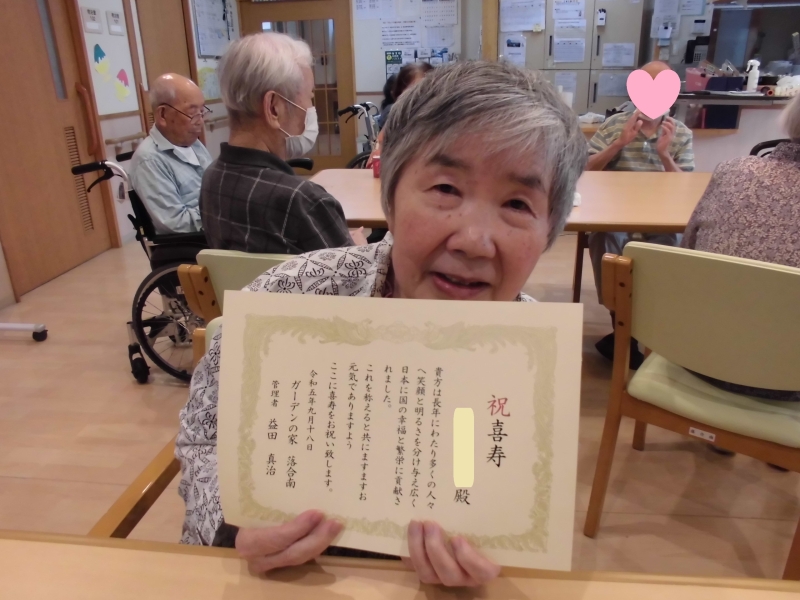 祝 喜寿
殿
貴方は長年にわたり多くの人々
へ笑顔と明るさを分け与え広く
日本に国の幸福と繁栄に貢献さ
れました。
これを称えると共にますますお
元気でありますよう
ここに喜寿をお祝い致します。
令和五年九月十八日
ガーデンの家 落合南
管理者 益田 真治